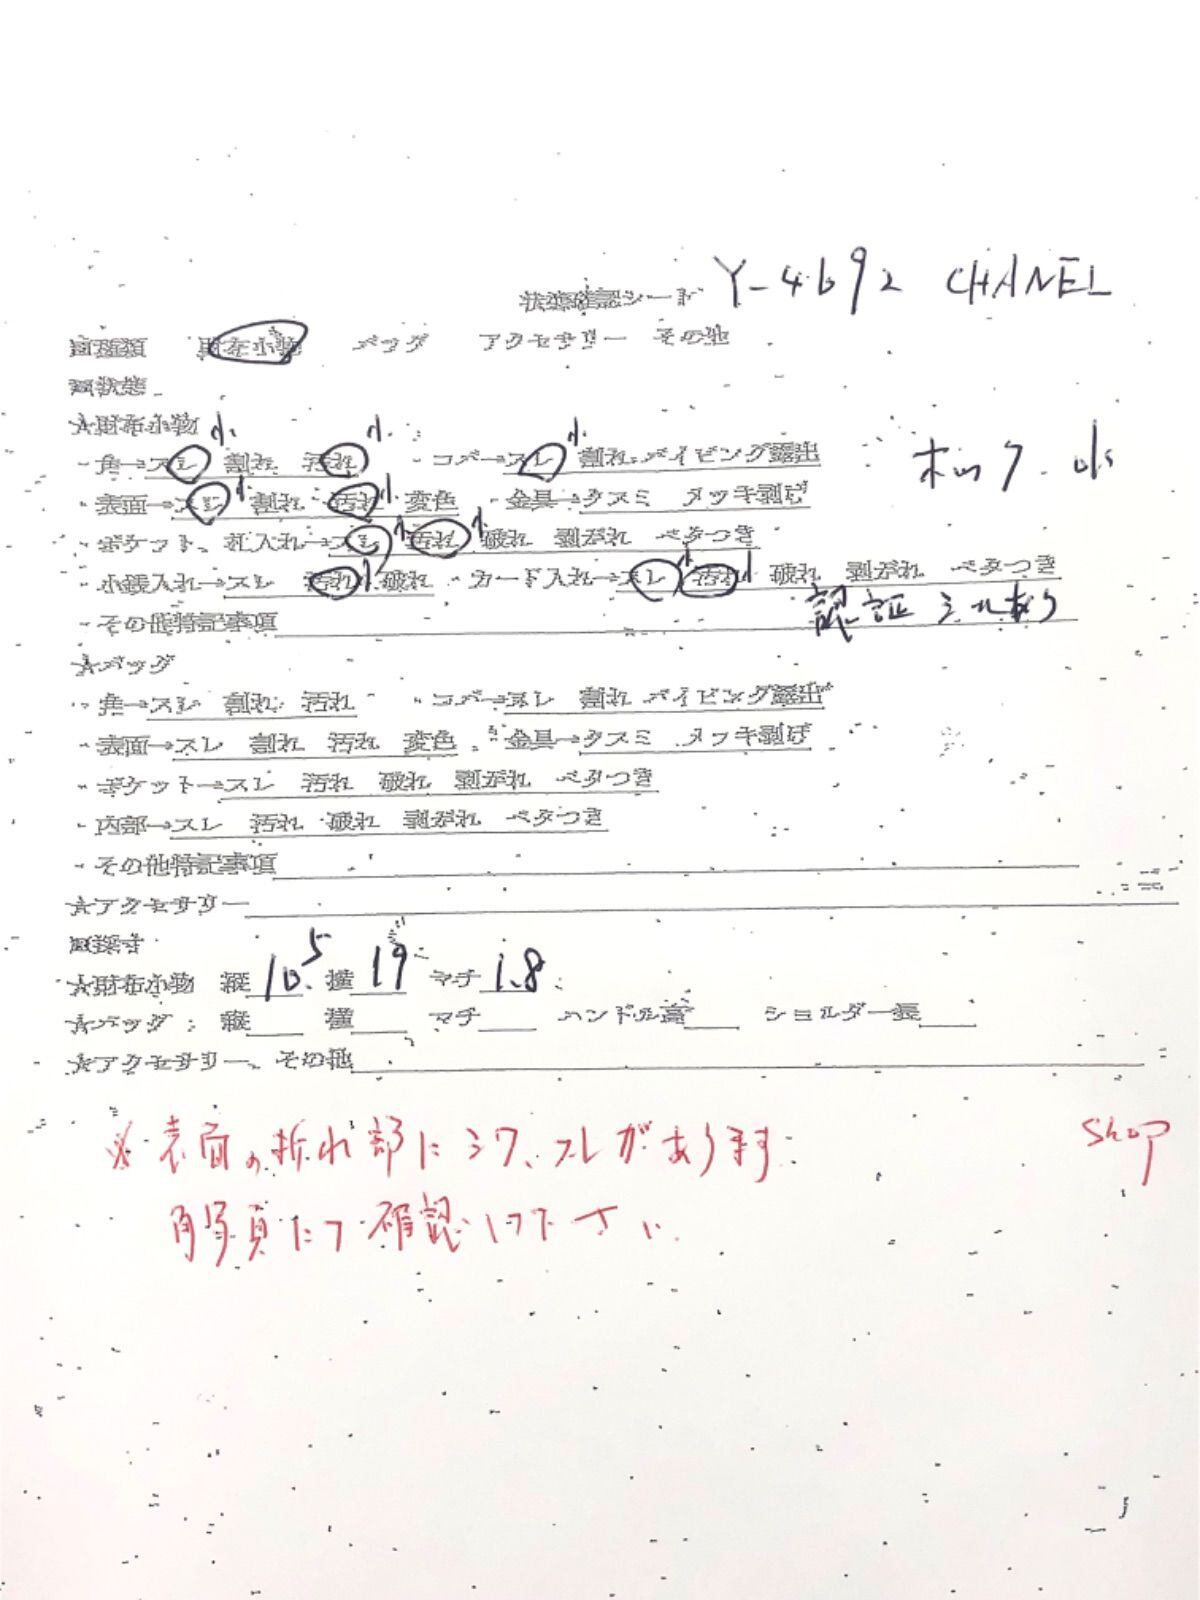 状態確認シート Y-4692 CHANEL
■種類 財布小物 バッグ アクセサリー その他
■状態
★財布小物
・角→スレ小 割れ 汚れ小 ・コバ→スレ小 割れ パイピング露出
・表面→スレ小 割れ 汚れ小 変色 ・金具→クスミ メッキ剥げ ホック ok
・ポケット、札入れ→スレ小 汚れ小 破れ 剥がれ ベタつき
・小銭入れ→スレ 汚れ小 破れ ・カード入れ→スレ小 汚れ小 破れ 剥がれ ベタつき
・その他特記事項 認証シールあり
★バッグ
・角→スレ 割れ 汚れ ・コバ→スレ 割れ パイピング露出
・表面→スレ 割れ 汚れ 変色 ・金具→クスミ メッキ剥げ
・ポケット→スレ 汚れ 破れ 剥がれ ベタつき
・内部→スレ 汚れ 破れ 剥がれ ベタつき
・その他特記事項
★アクセサリー
■採寸
★財布小物 縦 10.5 横 19 マチ 1.8
★バッグ: 縦 横 マチ ハンドル高 ショルダー長
★アクセサリー、その他
※表面の折れ部にシワ、スレがあります shop
写真にて確認して下さい